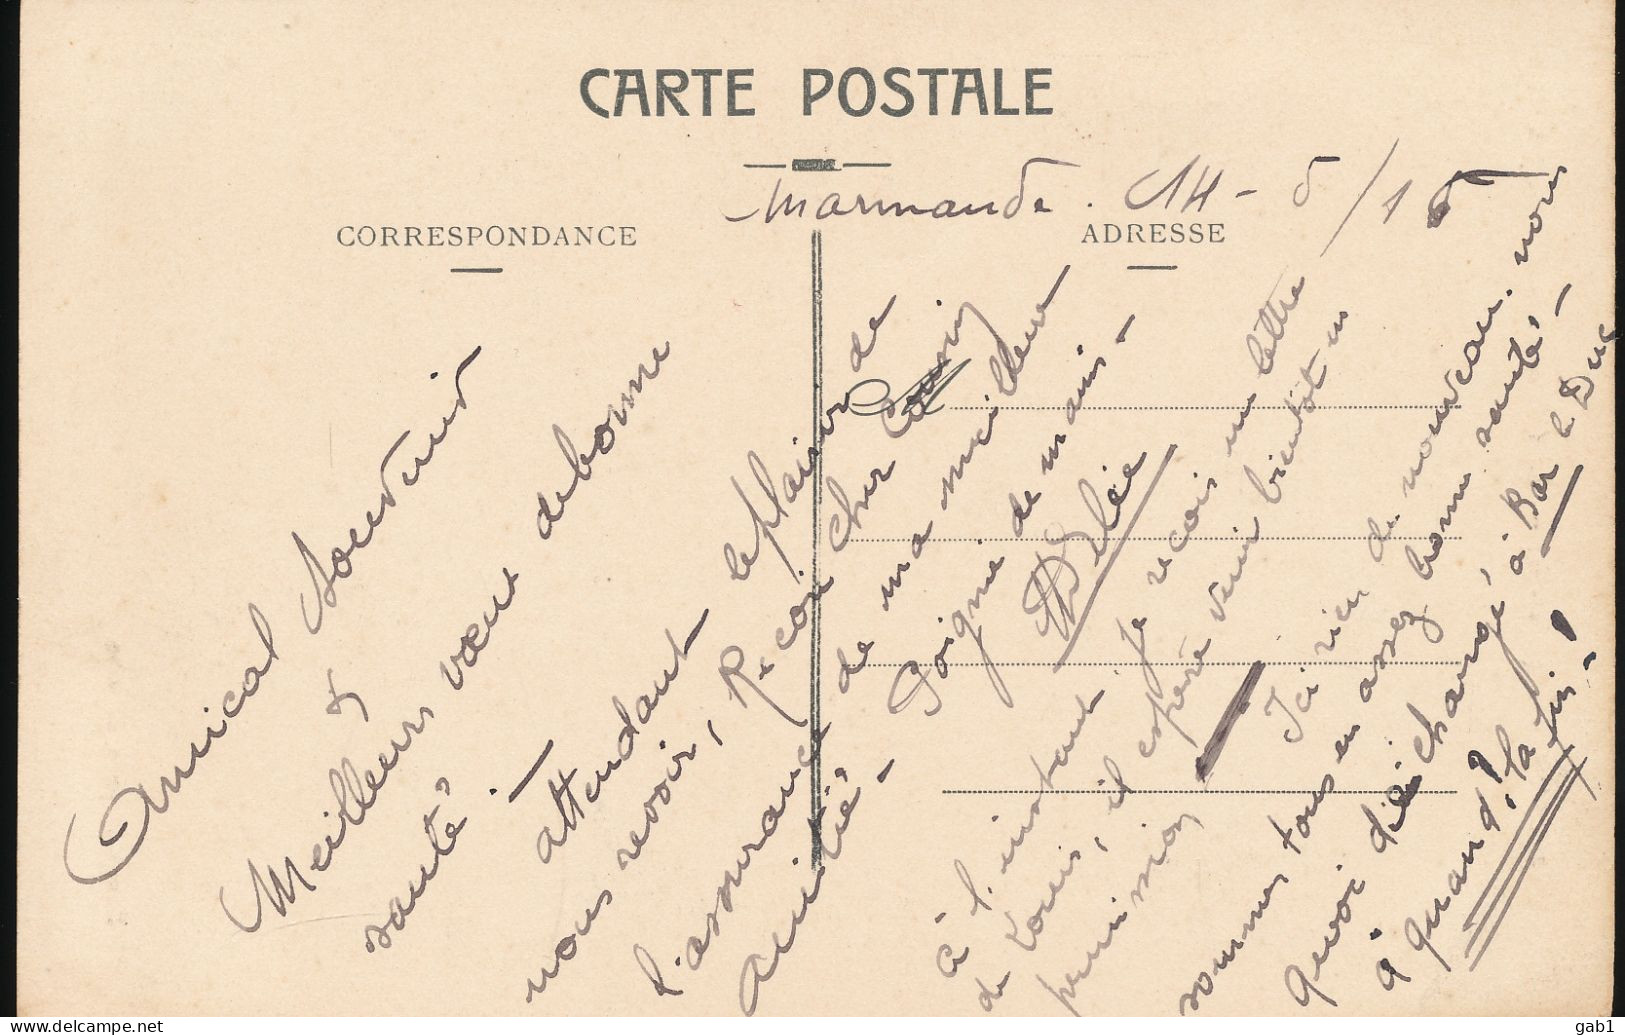 CARTE POSTALE
Marmande. 14 - 5/15
CORRESPONDANCE
ADRESSE
Amical Souvenir
&
Meilleurs vœux de bonne
santé. -
attendant le plaisir de
nous revoir, Reçois cher Cousin
l'assurance de ma meilleure
Amitié -
Poignée de mains -
à l'instant je reçois une lettre
de Louis, il espère venir bientôt en
permission
Ici rien de nouveau. nous
sommes tous en assez bonne santé -
changé, à Bar le Duc
à quand? la fin!
Delcampe.net
gab1